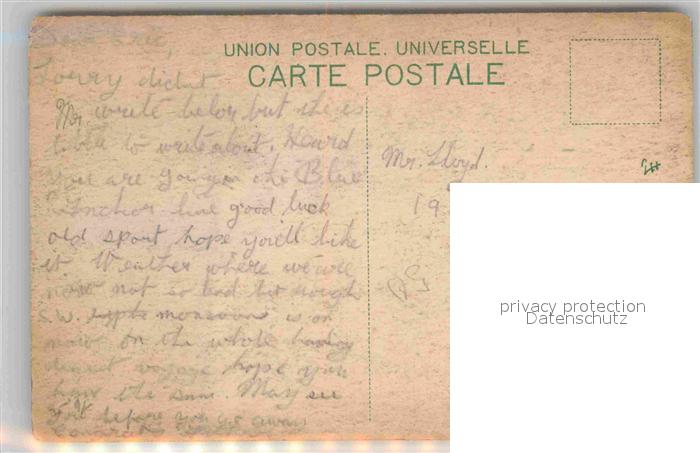 Dear Eric,
Sorry didnt
write before but there is
to write about. Heard
you are going on the Blue
Anchor line good luck
old sport, hope you'll like
it. Weather where we are
now not so bad but rough
S.W. monsoons is on
now on the whole having
decent voyage hope you
have the same. May see
you before you go away
UNION POSTALE. UNIVERSELLE
CARTE POSTALE
Mr. Lloyd.
19
privacy protection
Datenschutz